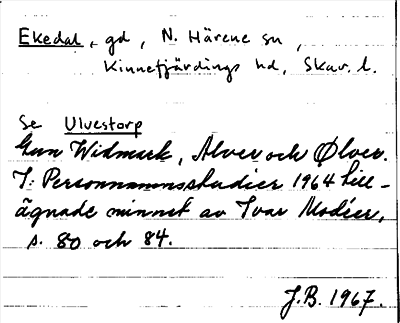 Ekedal, gd, N. Härene sn,
Kinnefjärdings hd, Skar. l.
Se Ulvestorp
Gun Widmark, Alver och Ølver.
I: Personnamnsstudier 1964 till-
ägnade minnet av Ivar Modéer,
s. 80 och 84.
J.B. 1967.